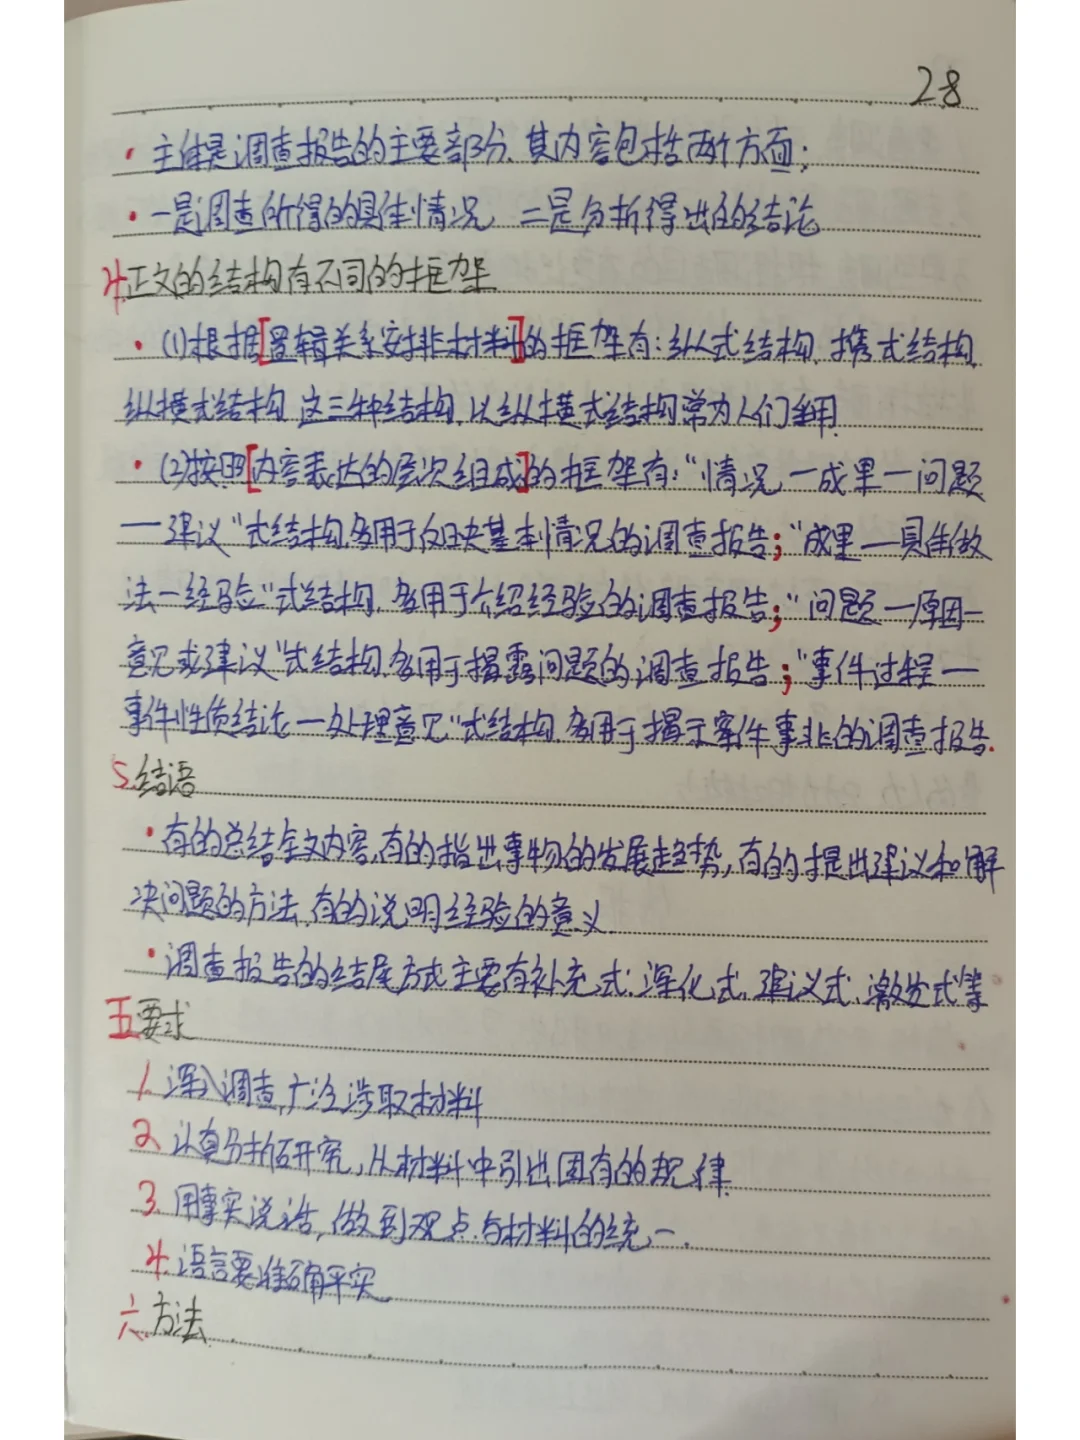 28
·主体是调查报告的主要部分,其内容包括两个方面:
·一是调查所得的具体情况,二是分析得出的结论
4.正文的结构有不同的框架
·(1)根据[逻辑关系安排材料]的框架有:纵式结构、横式结构、
纵横式结构.这三种结构,以纵横式结构常为人们采用.
·(2)按照[内容表达的层次组成]的框架有:"情况—成果—问题
—建议"式结构,多用于反映基本情况的调查报告;"成果—具体做
法—经验"式结构,多用于介绍经验的调查报告;"问题—原因—
意见或建议"式结构,多用于揭露问题的调查报告;"事件过程—
事件性质结论—处理意见"式结构,多用于揭示案件事非的调查报告.
5.结语
·有的总结全文内容,有的指出事物的发展趋势,有的提出建议和解
决问题的方法,有的说明经验的意义.
·调查报告的结尾方式主要有补充式、深化式、建议式、激发式等
五要求
1.深入调查,广泛涉取材料
2.认真分析研究,从材料中引出固有的规律.
3.用事实说话,做到观点与材料的统一.
4.语言要准确平实.
六.方法.